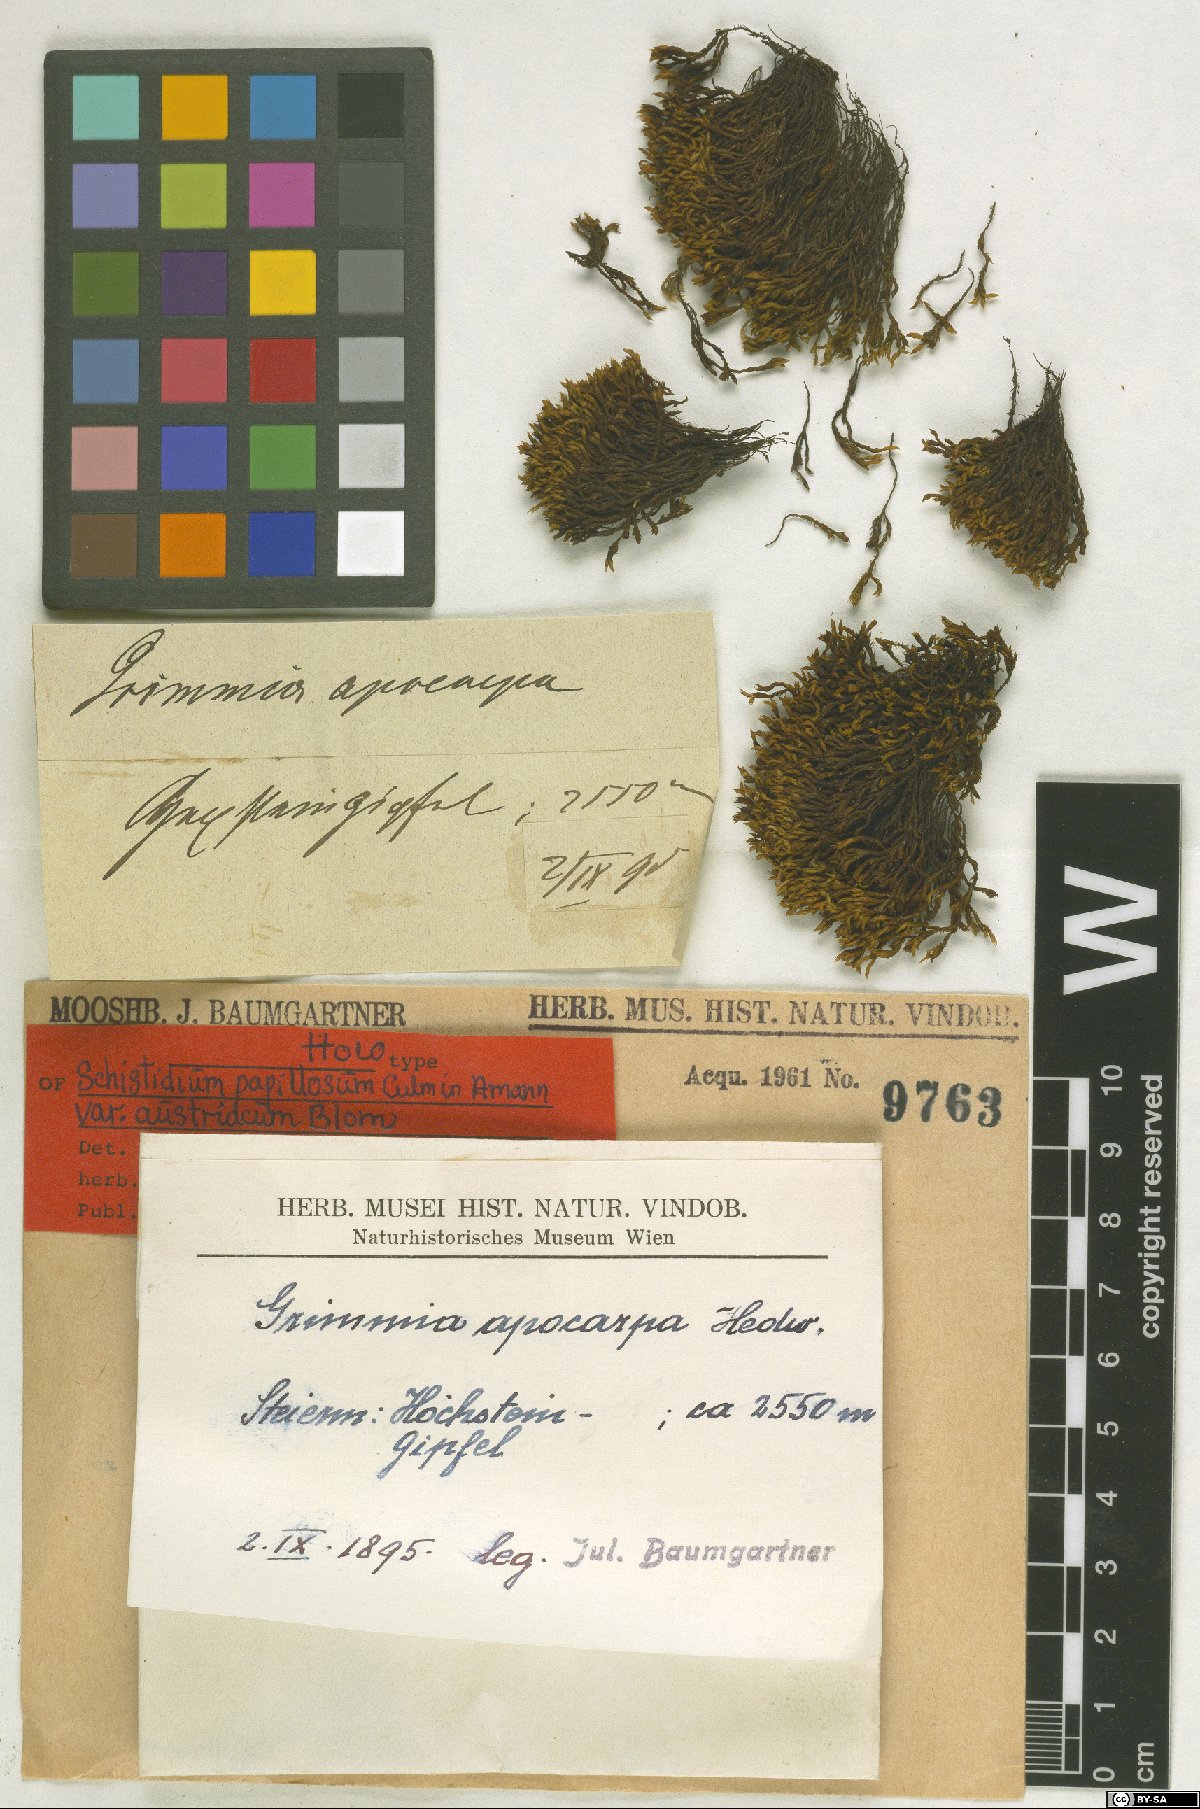 Grimmia apocarpa
Hochsteingipfel ; 2550 m
2/IX 95
MOOSHB. J. BAUMGARTNER
HERB. MUS. HIST. NATUR. VINDOB.
Acqu. 1961 No. 9763
Holo type
OF Schistidium papillosum Culm in Amann
var. austriacum Blom
Det.
herb.
Publ.
HERB. MUSEI HIST. NATUR. VINDOB.
Naturhistorisches Museum Wien
Grimmia apocarpa Hedw.
Steierm: Höchstein- ; ca 2550 m
gipfel
2. IX. 1895. leg. Jul. Baumgartner
W
10
9
8
7
6
5
4
3
2
1
0
cm
copyright reserved
cc BY-SA